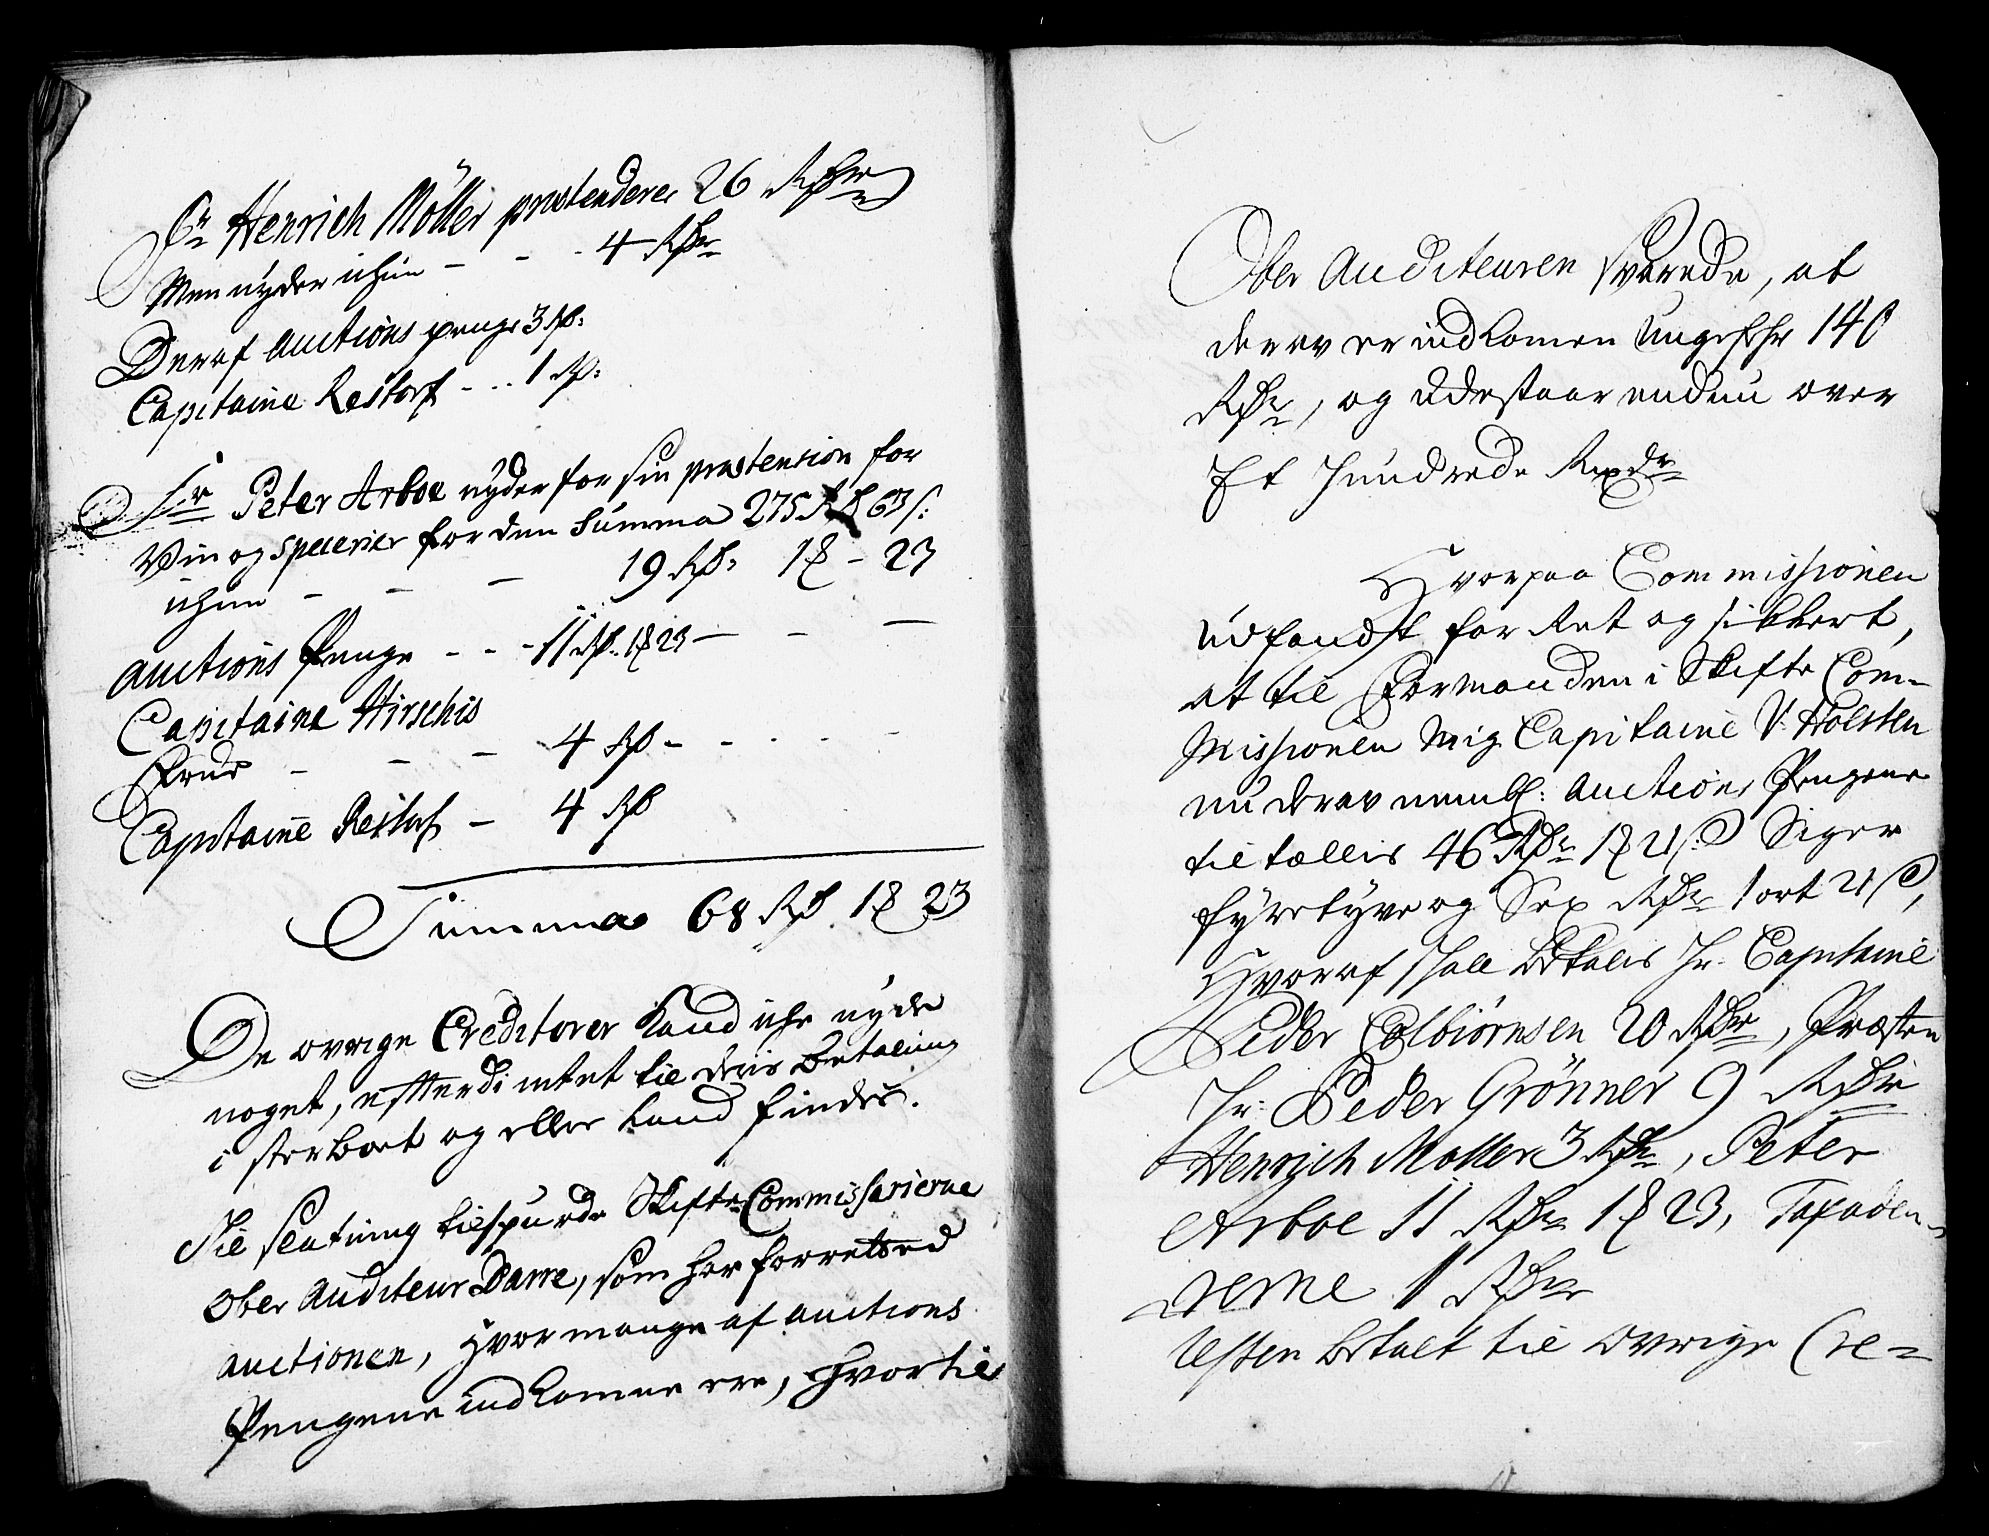 Sr Henrich Möller prætenderer 26 Rdr
Men nyder ichun - - - 4 Rdr
Deraf Auctions penge 3 Rd:
Capitaine Restorf - - - 1 Rd:
Sr Peter Arboe nyder for sin prætension for
Vin og Specerier for den Summa 275 Rd 63 s:
ichun - - - 19 Rd: 1 ẞ - 23
Auctions Penge - - - 11 Rd: 1 ẞ 23 - - -
Capitaine Hirschis
Frue - - - 4 Rd - - - - -
Capitaine Restorf - 4 Rd
Summa 68 Rd 1 ẞ 23
De ovrige Creditorer Kand iche nyde
noget, efterdi intet til deris Betaling
i sterboet og eller land findes.
Til slutning tilspurde Skifte Commissarierne
Ober Auditeur Darre, som har forretted
auctionen, hvor mange af auctions
Pengene indkomne ere, hvortil
Ober Auditeuren svarede, at
derav er indkomen Ungefehr 140
Rdr, og udestaar endnu over
Et Hundrede Rixdr
Hvorpaa Commissionen
udfandt for Ret og sikkert,
at til Formanden i Skifte Com-
missionen Mig Capitaine V: Holsten
nu derav nembl: Auctions Pengene
til tællis 46 Rdr 1 ẞ 21 s: Siger
fyretyve og Sex Rdr 1 ort 21 s,
Hvoraf skall betales Hr: Capitaine
Peder Colbiörnsen 20 Rdr, Præsten
Hr: Peder Grönner 9 Rdr
Henrich Moller 3 Rdr, Peter
Arboe 11 Rdr 1 ẞ 23, Taxaden-
rerne 1 Rdr
Uften betalt til ovrige Cre-